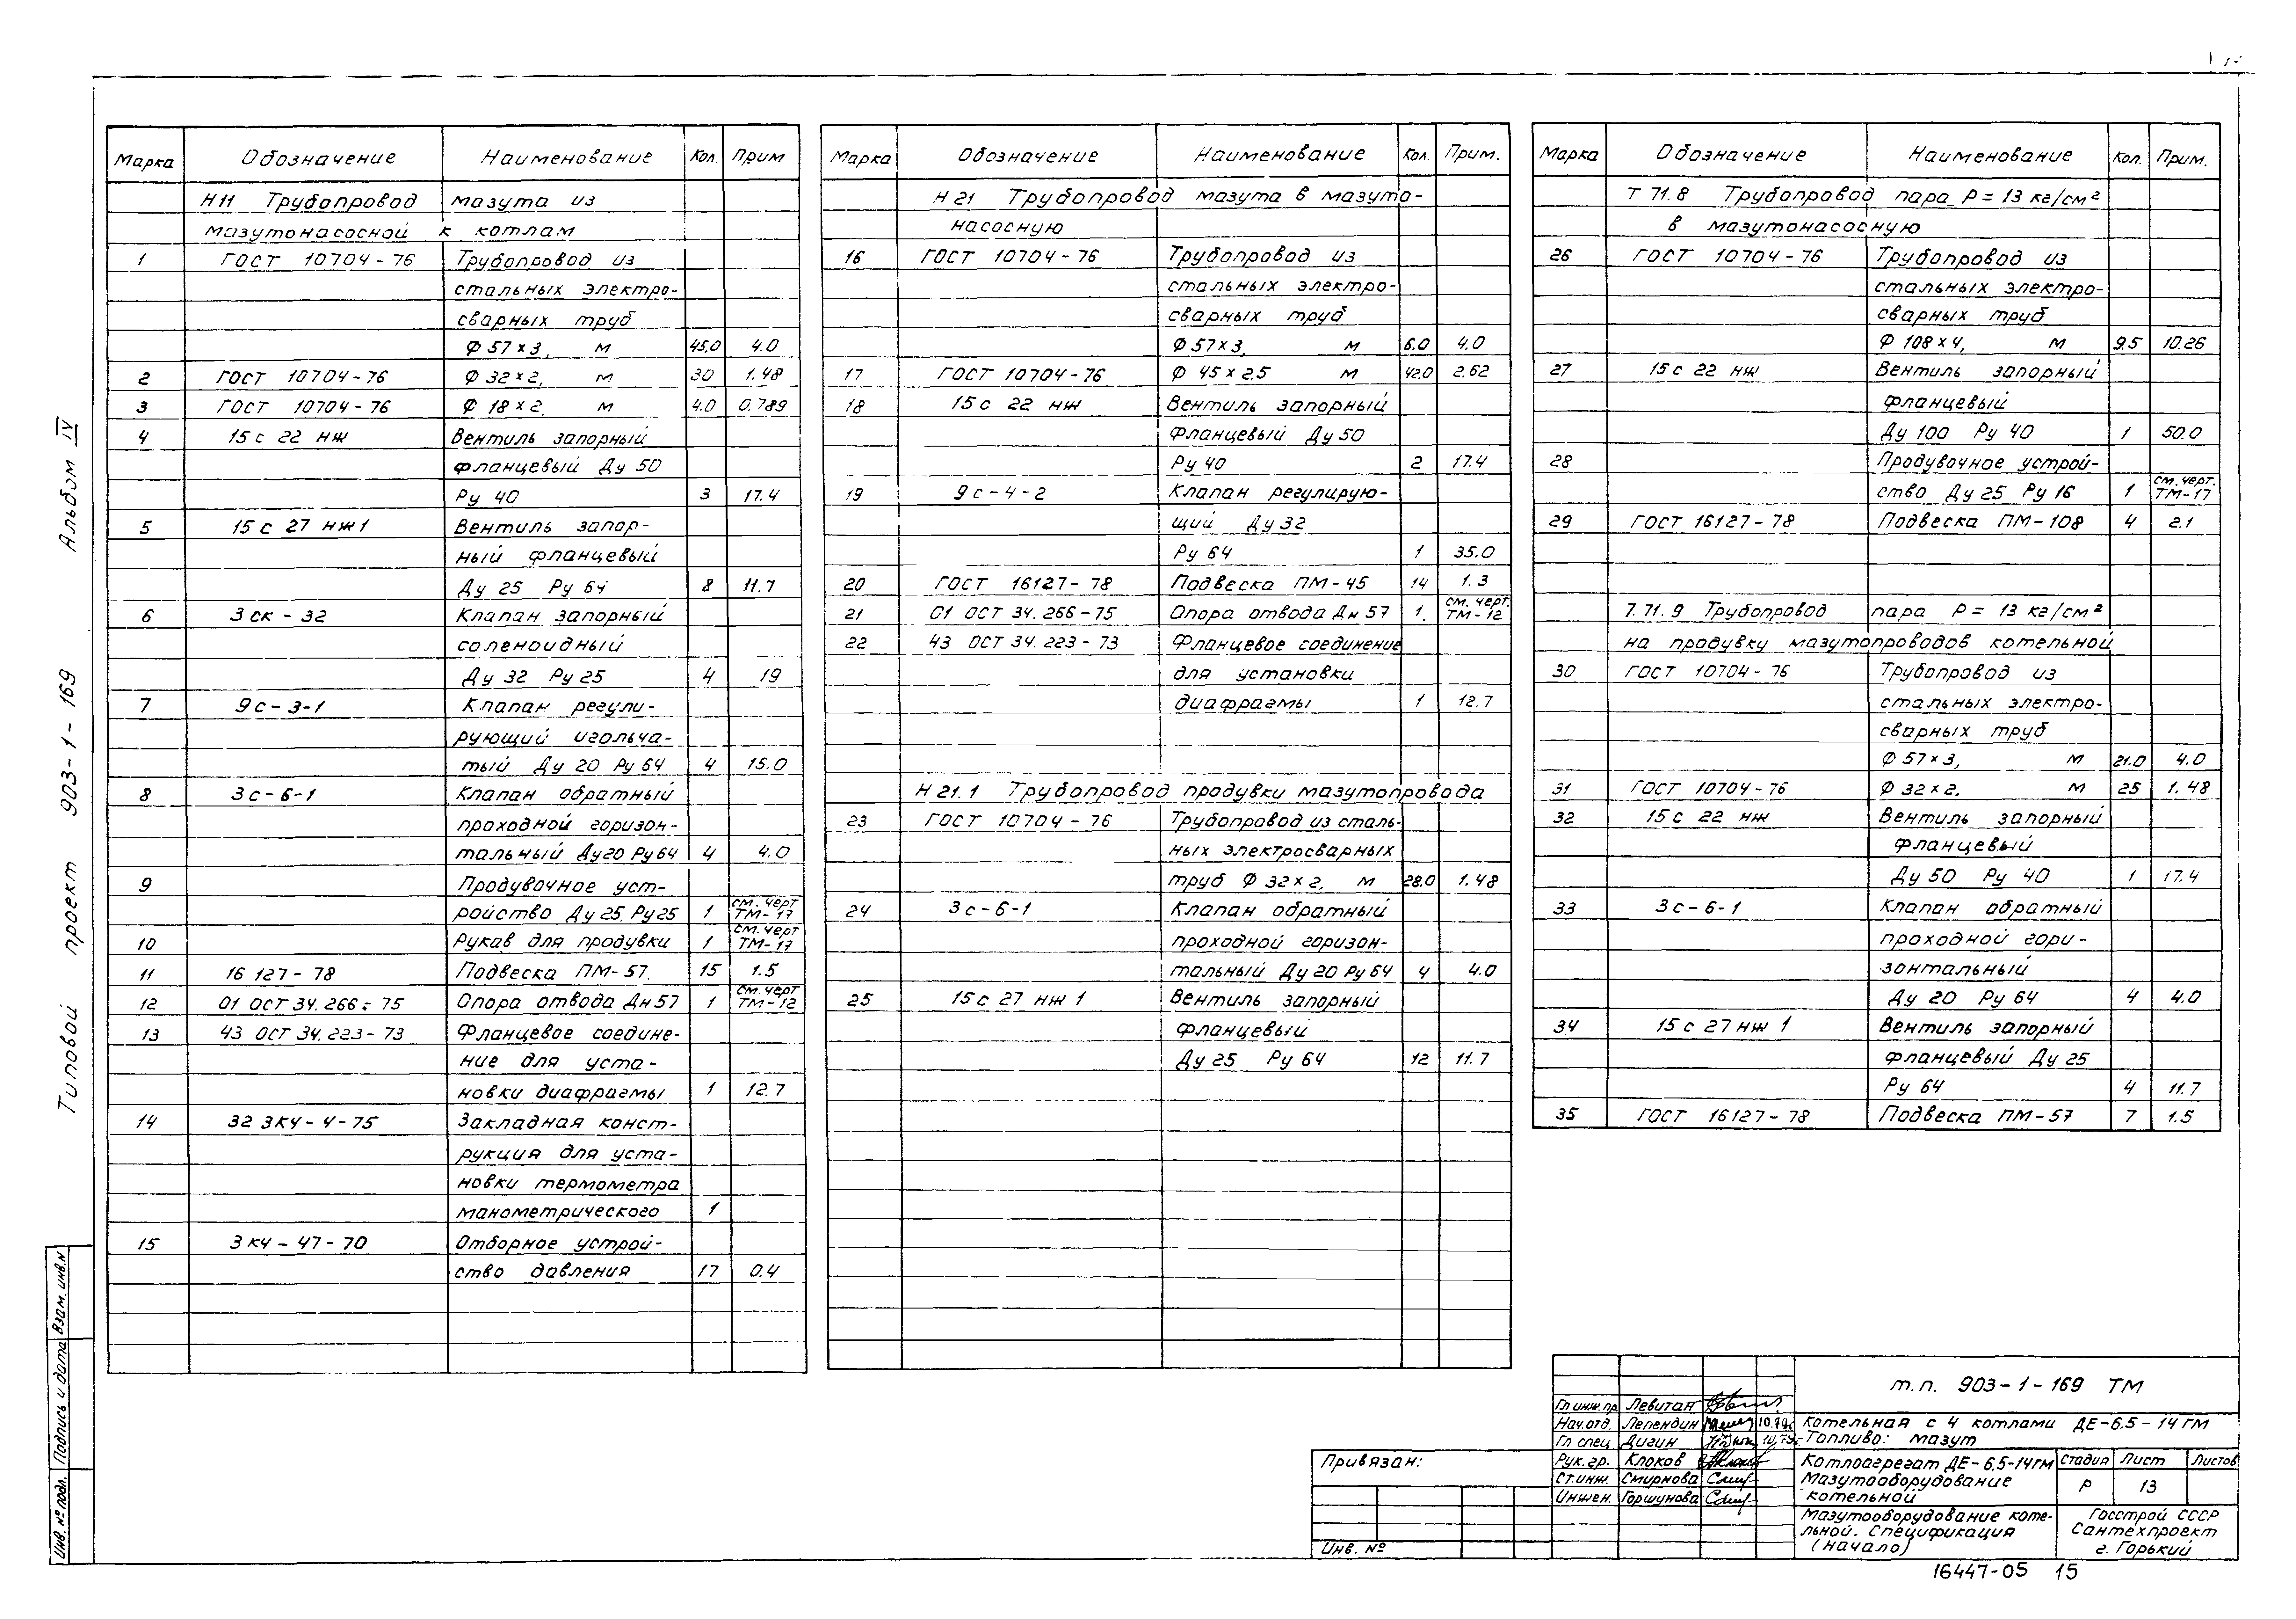 Марка Обозначение Наименование Кол. Прим
Н11 Трубопровод мазута из
мазутонасосной к котлам
1 ГОСТ 10704-76 Трубопровод из
стальных электро-
сварных труб
Ф 57×3, м 45.0 4.0
2 ГОСТ 10704-76 Ф 32×2, м 30 1.48
3 ГОСТ 10704-76 Ф 18×2 м 4.0 0.789
4 15с 22 нж Вентиль запорный
фланцевый Ду 50
Ру 40 3 17.4
5 15с 27 нж1 Вентиль запор-
ный фланцевый
Ду 25 Ру 64 8 11.7
6 3 ск-32 Клапан запорный
соленоидный
Ду 32 Ру 25 4 19
7 9с-3-1 Клапан регули-
рующий игольча-
тый Ду 20 Ру 64 4 15.0
8 3с-6-1 Клапан обратный
проходной горизон-
тальный Ду20 Ру64 4 4.0
9 Продувочное уст-
ройство Ду 25 Ру25 1 см. черт ТМ-17
10 Рукав для продувки 1 см. черт ТМ-17
11 16 127-78 Подвеска ПМ-57. 15 1.5
12 01 ОСТ 34.266-75 Опора отвода Дн57 1 см. черт ТМ-12
13 43 ОСТ 34.223-73 Фланцевое соедине-
ние для уста-
новки диафрагмы 1 12.7
14 32 ЗК4-4-75 Закладная конст-
рукция для уста-
новки термометра
манометрического 1
15 ЗК4-47-70 Отборное устрой-
ство давления 17 0.4
Марка Обозначение Наименование Кол. Прим.
Н 21 Трубопровод мазута в мазуто-
насосную
16 ГОСТ 10704-76 Трубопровод из
стальных электро-
сварных труб
Ф57×3, м 6.0 4.0
17 ГОСТ 10704-76 Ф 45×2.5 м 42.0 2.62
18 15с 22 нж Вентиль запорный
фланцевый Ду 50
Ру 40 2 17.4
19 9с-4-2 Клапан регулирую-
щий Ду 32
Ру 64 1 35.0
20 ГОСТ 16127-78 Подвеска ПМ-45 14 1.3
21 01 ОСТ 34.266-75 Опора отвода Дн 57 1. см. черт. ТМ-12
22 43 ОСТ 34.223-73 Фланцевое соединение
для установки
диафрагмы 1 12.7
Н 21.1 Трубопровод продувки мазутопровода
23 ГОСТ 10704-76 Трубопровод из сталь-
ных электросварных
труб Ф 32×2, м 28.0 1.48
24 3с-6-1 Клапан обратный
проходной горизон-
тальный Ду 20 Ру 64 4 4.0
25 15с 27 нж 1 Вентиль запорный
фланцевый
Ду 25 Ру 64 12 11.7
Марка Обозначение Наименование Кол. Прим.
Т 71.8 Трубопровод пара Р = 13 кг/см²
в мазутонасосную
26 ГОСТ 10704-76 Трубопровод из
стальных электро-
сварных труб
Ф 108×4, м 9.5 10.26
27 15с 22 нж Вентиль запорный
фланцевый
Ду 100 Ру 40 1 50.0
28 Продувочное устрой-
ство Ду 25 Ру 16 1 см. черт. ТМ-17
29 ГОСТ 16127-78 Подвеска ПМ-108 4 2.1
7.71.9 Трубопровод пара Р = 13 кг/см²
на продувку мазутопроводов котельной
30 ГОСТ 10704-76 Трубопровод из
стальных электро-
сварных труб
Ф 57×3, м 21.0 4.0
31 ГОСТ 10704-76 Ф 32×2, м 25 1.48
32 15с 22 нж Вентиль запорный
фланцевый
Ду 50 Ру 40 1 17.4
33 3с-6-1 Клапан обратный
проходной гори-
зонтальный
Ду 20 Ру 64 4 4.0
34 15с 27 нж 1 Вентиль запорный
фланцевый Ду 25
Ру 64 4 11.7
35 ГОСТ 16127-78 Подвеска ПМ-57 7 1.5
Типовой проект 903-1-169 Альбом IV
Инв. № подл. Подпись и дата Взам. инв. №
т.п. 903-1-169 ТМ
Гл инж. пр Левитан
Нач. отд. Лепендин 10.79г
Гл спец Дигин 10.79г.
Рук. гр. Клоков
Ст. инж. Смирнова
Инжен. Горшунова
Котельная с 4 котлами ДЕ-6.5-14ГМ
Топливо: мазут
Котлоагрегат ДЕ-6,5-14ГМ
Мазутооборудование
котельной
Стадия Лист Листов
Р 13
Мазутооборудование коте-
льной. Спецификация
(начало)
Госстрой СССР
Сантехпроект
г. Горький
Привязан:
Инв. №
16447-05 15